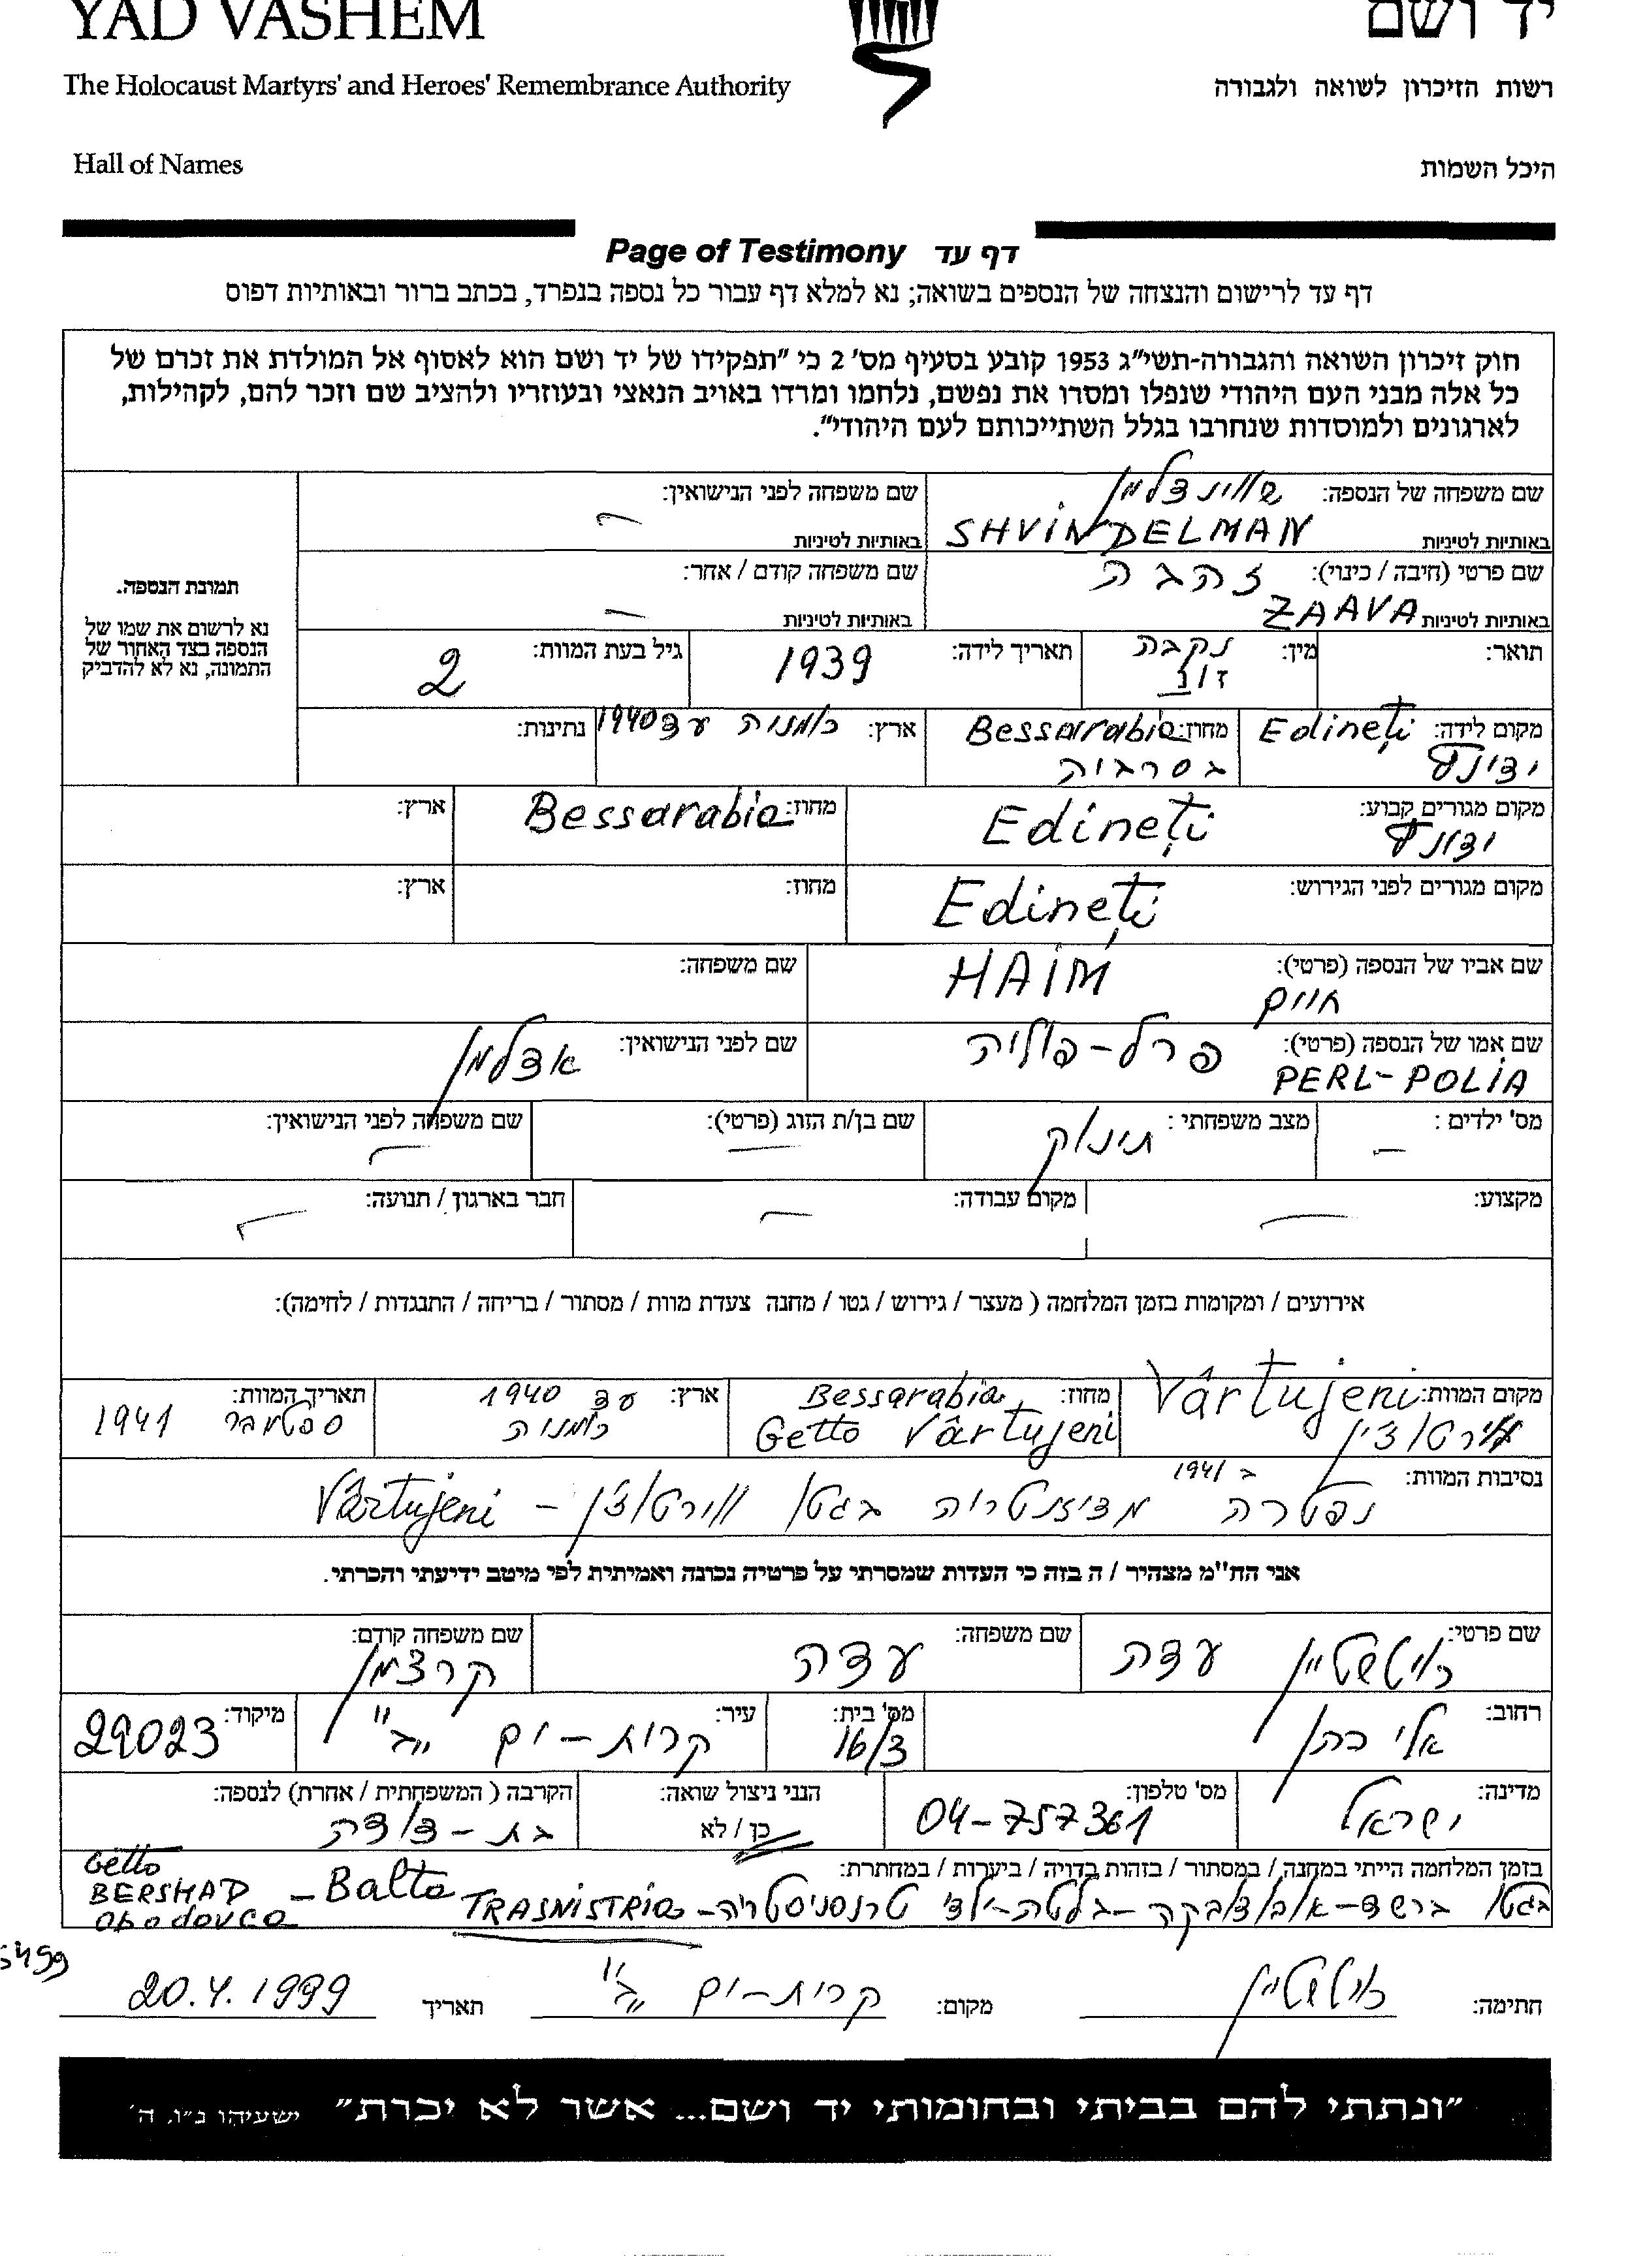 YAD VASHEM
יד ושם
The Holocaust Martyrs' and Heroes' Remembrance Authority
רשות הזיכרון לשואה ולגבורה
Hall of Names
היכל השמות
Page of Testimony דף עד
דף עד לרישום והנצחה של הנספים בשואה; נא למלא דף עבור כל נספה בנפרד, בכתב ברור ובאותיות דפוס
חוק זיכרון השואה והגבורה-תשי"ג 1953 קובע בסעיף מס' 2 כי "תפקידו של יד ושם הוא לאסוף אל המולדת את זכרם של
כל אלה מבני העם היהודי שנפלו ומסרו את נפשם, נלחמו ומרדו באויב הנאצי ובעוזריו ולהציב שם וזכר להם, לקהילות,
לארגונים ולמוסדות שנחרבו בגלל השתייכותם לעם היהודי".
שם משפחה של הנספה: שווינדלמן
באותיות לטיניות SHVINDELMAN
שם משפחה לפני הנישואין: –
באותיות לטיניות
שם פרטי (חיבה / כינוי): זהבה
באותיות לטיניות ZAAVA
שם משפחה קודם / אחר:
באותיות לטיניות –
תמונת הנספה.
נא לרשום את שמו של
הנספה בצד האחור של
התמונה, נא לא להדביק
תואר:
מין: נקבה
תאריך לידה: 1939
גיל בעת המוות: 2
מקום לידה: Edineţi
מחוז: Bessarabia
בסרביה
ארץ: רומניה עד 1940
נתינות:
מקום מגורים קבוע: Edineţi
מחוז: Bessarabia
ארץ:
מקום מגורים לפני הגירוש: Edineţi
מחוז:
ארץ:
שם אביו של הנספה (פרטי): HAIM
חיים
שם משפחה:
שם אמו של הנספה (פרטי): פרל-פוליה
PERL-POLIA
שם לפני הנישואין: אדלמן
מס' ילדים: –
מצב משפחתי: תינוק
שם בן/ת הזוג (פרטי): –
שם משפחה לפני הנישואין: –
מקצוע: –
מקום עבודה: –
חבר בארגון / תנועה: –
אירועים / ומקומות בזמן המלחמה ( מעצר / גירוש / גטו / מחנה צעדת מוות / מסתור / בריחה / התנגדות / לחימה):
מקום המוות: Vârtujeni
מחוז: Bessarabia
Getto Vârtujeni
ארץ: עד 1940
רומניה
תאריך המוות:
ספטמבר 1941
נסיבות המוות: ב 1941
נפטרה מדיזנטריה בגטו וורטוז'ן – Vârtujeni
אני הח"מ מצהיר / ה בזה כי העדות שמסרתי על פרטיה נכונה ואמיתית לפי מיטב ידיעתי והכרתי.
שם פרטי: רויטשטיין עדה
שם משפחה: עדה
שם משפחה קודם: קרצמן
רחוב: אלי כהן
מס' בית: 16/3
עיר: קרית-ים ג"
מיקוד: 29023
מדינה: ישראל
מס' טלפון: 04-757361
הנני ניצול שואה:
כן / לא
הקרבה ( המשפחתית / אחרת) לנספה:
בת-דודה
בזמן המלחמה הייתי במחנה / במסתור / בזהות בדויה / ביערות / במחתרת:
בגטו ברשד-אובודובקה-בלטה-ילדי טרנסניסטריה- TRASNISTRIA
Getto
BERSHAD – Balta
Obodovca
חתימה: רויטשטיין
מקום: קרית-ים ג"
תאריך 20.4.1999
"ונתתי להם בביתי ובחומותי יד ושם... אשר לא יכרת" ישעיהו נ"ו, ה'